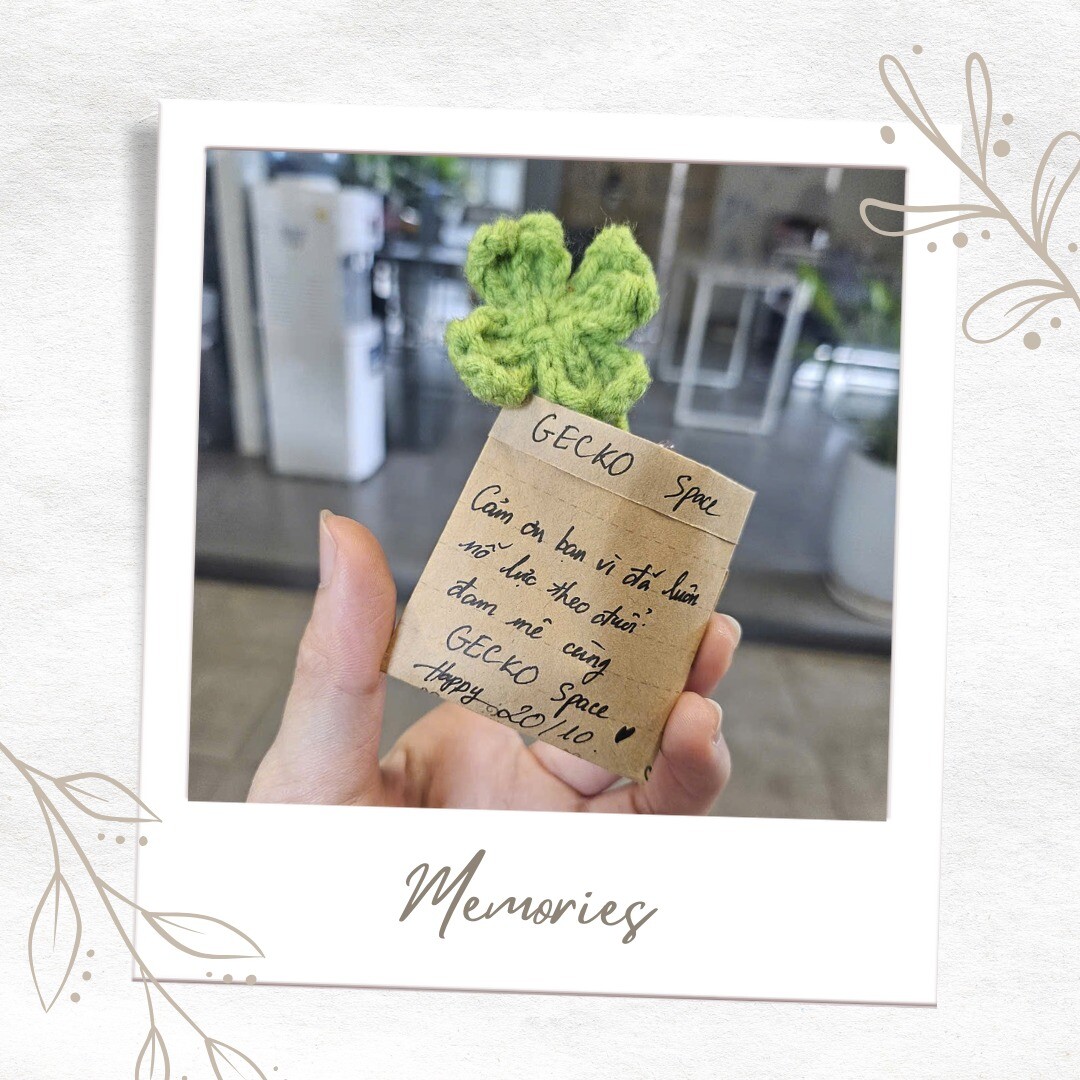 GECKO Space
Cảm ơn bạn vì đã luôn
nỗ lực theo đuổi
đam mê cùng
GECKO Space
Happy 20/10. ♥
Memories